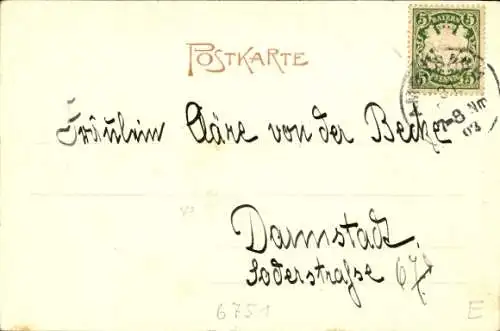 POSTKARTE
5 BAYERN 5
5 PFENNIG 5
7-8 Nm
03
Fräulein Cläre von der Becke
Darmstadt,
Soderstraße
6751
E